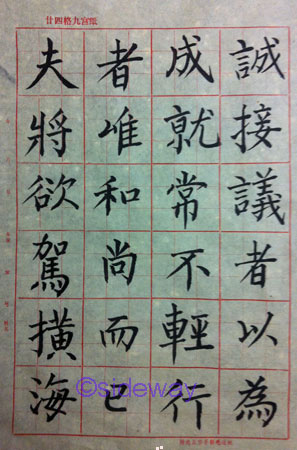 廿四格九宮紙
誠接議者以為
成就常不輕行
者唯和尚而已
夫將欲駕撗海
©sideway